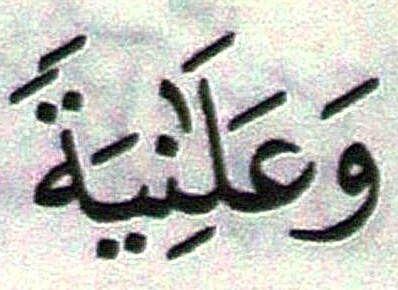 وَعَلَٰنِيَةً